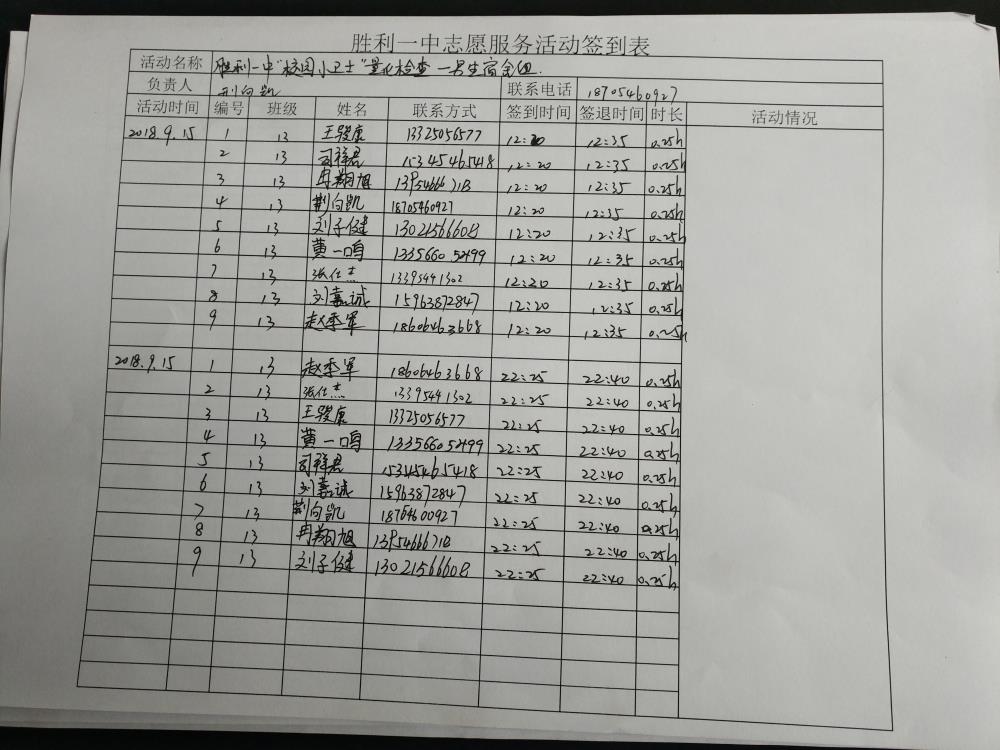 胜利一中志愿服务活动签到表
活动名称 胜利一中"校园小卫士"量化检查—男生宿舍组.
负责人 荆向凯 联系电话 18705460927
活动时间 编号 班级 姓名 联系方式 签到时间 签退时间 时长 活动情况
2018.9.15 1 13 王骏康 13325056577 12:20 12:35 0.25h
2 13 司祥君 15345465418 12:20 12:35 0.25h
3 13 冉翔旭 12:20 12:35 0.25h
4 13 荆向凯 18705460927 12:20 12:35 0.25h
5 13 刘子健 12:20 12:35 0.25h
6 13 黄一鸣 133566052499 12:20 12:35 0.25h
7 13 张仕杰 13395441302 12:20 12:35 0.25h
8 13 刘嘉诚 15963872847 12:20 12:35 0.25h
9 13 赵季军 18606463668 12:20 12:35 0.25h
2018.9.15 1 13 赵季军 18606463668 22:25 22:40 0.25h
2 13 张仕杰 13395441302 22:25 22:40 0.25h
3 13 王骏康 13325056577 22:25 22:40 0.25h
4 13 黄一鸣 133566052499 22:25 22:40 0.25h
5 13 司祥君 15345465418 22:25 22:40 0.25h
6 13 刘嘉诚 15963872847 22:25 22:40 0.25h
7 13 荆向凯 22:25 22:40 0.25h
8 13 冉翔旭 22:25 22:40 0.25h
9 13 刘子健 22:25 22:40 0.25h